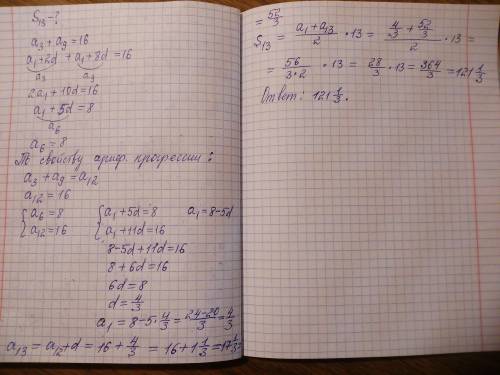 S₁₃ - ?
a₃ + a₉ = 16
a₁+2d + a₁+8d = 16
a₃ a₉
2a₁ + 10d = 16
a₁ + 5d = 8
a₆
a₆ = 8
По свойству ариф. прогрессии:
a₃ + a₉ = a₁₂
a₁₂ = 16
{ a₆ = 8 { a₁ + 5d = 8 a₁ = 8-5d
{ a₁₂ = 16 { a₁ + 11d = 16
8-5d+11d = 16
8 + 6d = 16
6d = 8
d = 4/3
a₁ = 8-5·4/3 = (24-20)/3 = 4/3
a₁₃ = a₁₂ + d = 16 + 4/3 = 16 + 1 1/3 = 17 1/3 =
= 52/3
S₁₃ = (a₁ + a₁₃)/2 · 13 = (4/3 + 52/3)/2 · 13 =
= 56/(3·2) · 13 = 28/3 · 13 = 364/3 = 121 1/3
Ответ: 121 1/3.